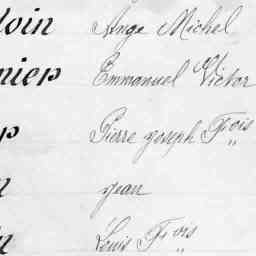 loin Ange Michel
nier Emmanuel Victor
p Pierre joseph Fois
n jean
in Louis Fois